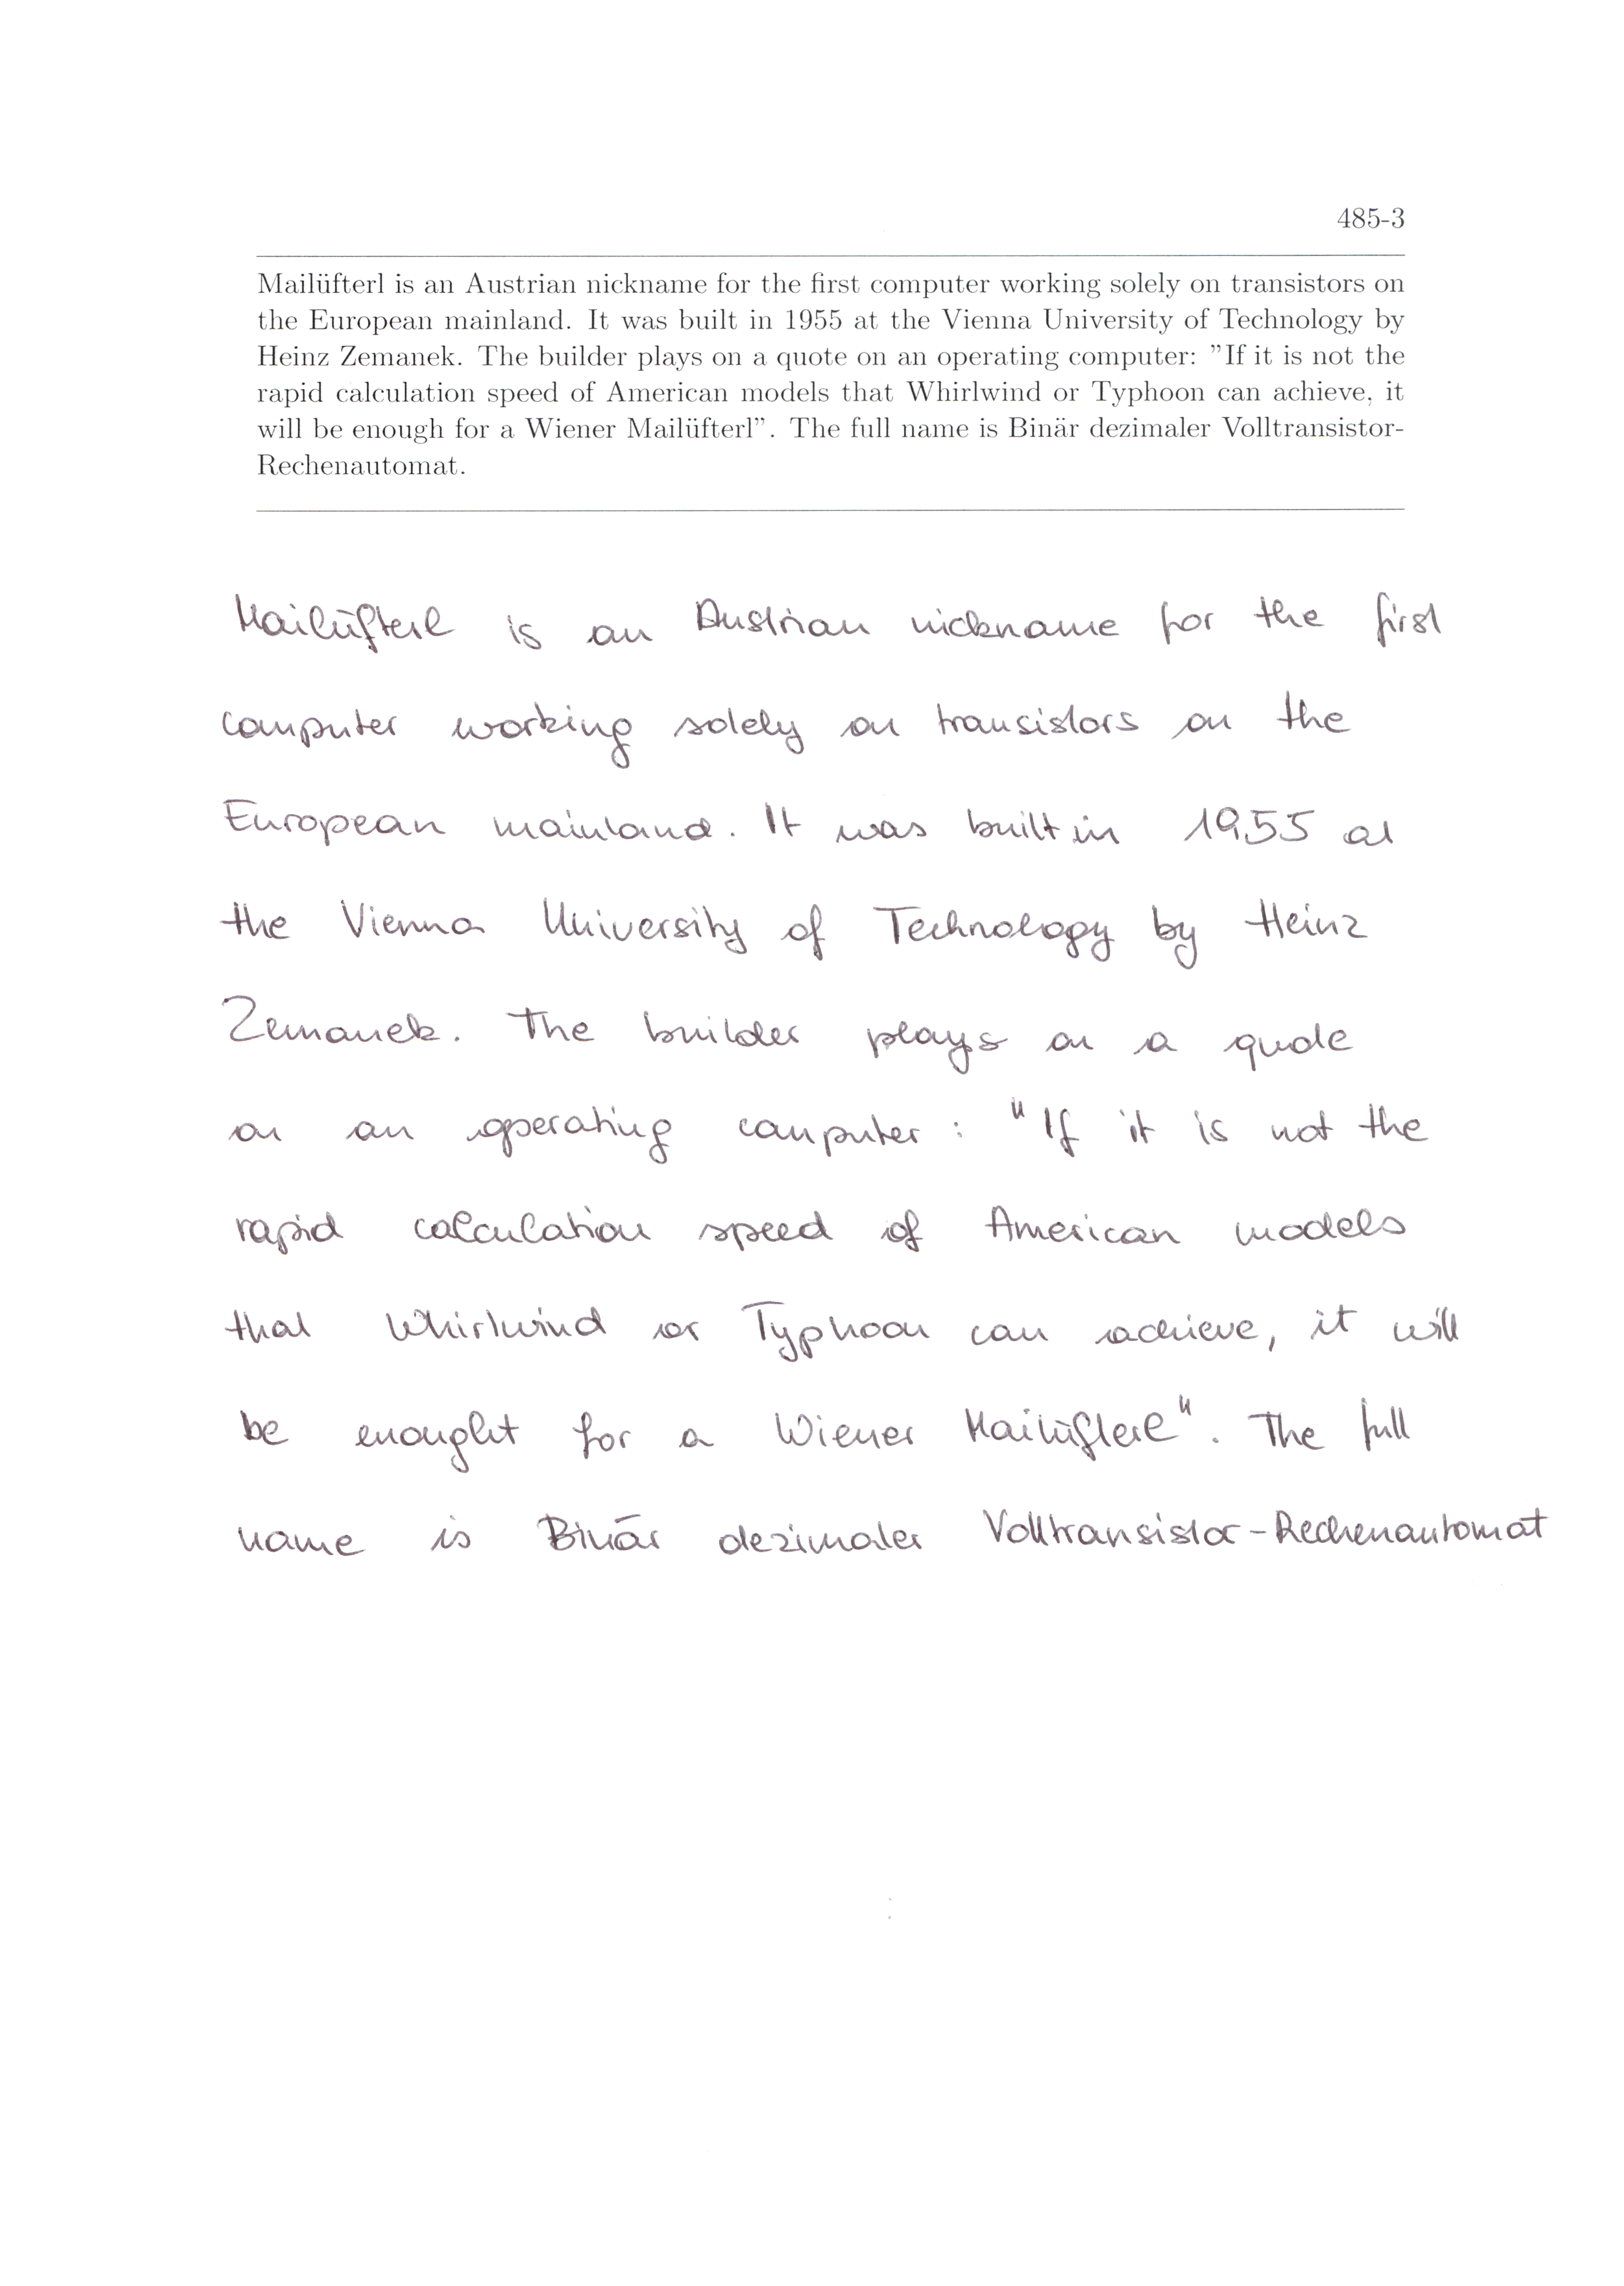 485-3
Mailüfterl is an Austrian nickname for the first computer working solely on transistors on
the European mainland. It was built in 1955 at the Vienna University of Technology by
Heinz Zemanek. The builder plays on a quote on an operating computer: ”If it is not the
rapid calculation speed of American models that Whirlwind or Typhoon can achieve, it
will be enough for a Wiener Mailüfterl”. The full name is Binär dezimaler Volltransistor-
Rechenautomat.
Mailüfterl is an Austrian nickname for the first
computer working solely on transistors on the
European mainland. It was built in 1955 at
the Vienna University of Technology by Heinz
Zemanek. The builder plays on a quote
on an operating computer: "If it is not the
rapid calculation speed of American models
that Whirlwind or Typhoon can achieve, it will
be enought for a Wiener Mailüfterl". The full
name is Binär dezimaler Volltransistor-Rechenautomat